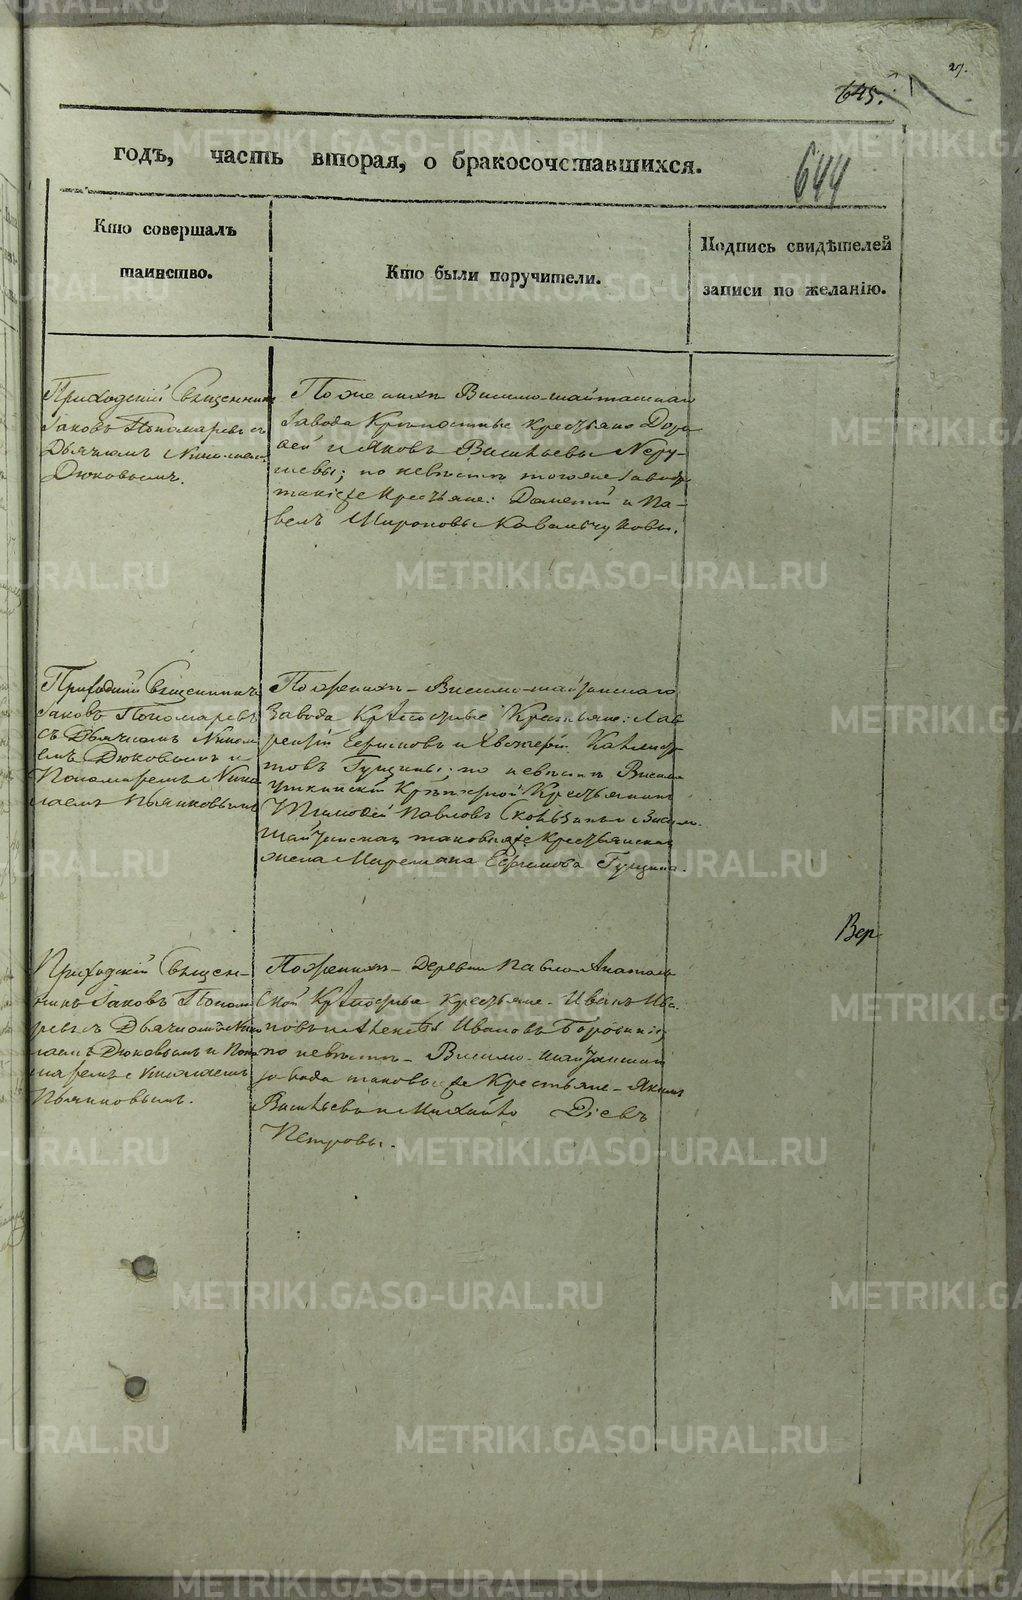 27.
645.
644
годъ, часть вторая, о бракосочетавшихся.
Кто совершалъ
таинство.
Кто были поручители.
Подпись свидѣтелей
записи по желанію.
Приходскій Священникъ
Іаковъ Пономаревъ съ
Дьячкомъ Николаемъ
Дюковымъ.
По женихѣ Висимо-шайтанскаго
завода Крѣпостные Крестьяне
и Яковъ Васильевы
по невѣстѣ тогоже завода
такіеже Крестьяне: Дометій и Па-
велъ Мироновы Ковальчуковы.
Приходскій Священникъ
Іаковъ Пономаревъ
съ Дьячкомъ Никола-
емъ Дюковымъ и
Пономаремъ Нико-
лаемъ Пьянковымъ
По женихѣ Висимо-шайтанскаго
завода Крѣпостные Крестьяне: Лав-
рентій и Евгеній Каллистра-
товъ Гущины; по невѣстѣ Висимо
уткинскій Крѣпостной Крестьянинъ
Тимофей Павловъ и Висимо-
шайтанская таковагоже Крестьянская
жена Маремьяна Гущина.
Вер
Приходскій Священ-
никъ Іаковъ Понома-
ревъ съ Дьячкомъ Нико-
лаемъ Дюковымъ и Поно-
маремъ Николаемъ
Пьянковымъ.
По женихѣ Деревни Павло-Анатоль-
ской Крѣпостные Крестьяне Иванъ Ива-
новъ и Алексѣй Ивановъ
по невѣстѣ Висимо-шайтанскаго
завода таковыеже Крестьяне Якимъ
Васильевъ и Михайло
Петровы.
METRIKI.GASO-URAL.RU